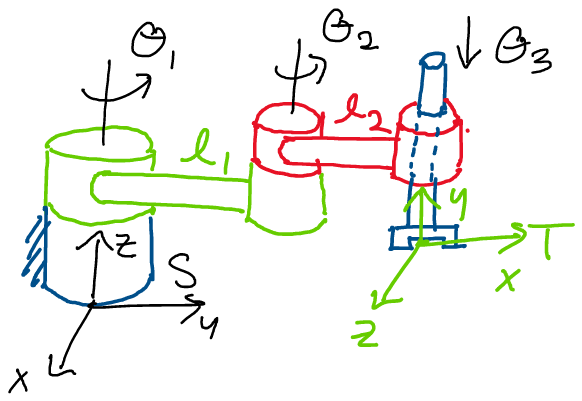 θ₁
θ₂
θ₃
l₁
l₂
z
S
y
x
y
T
x
z